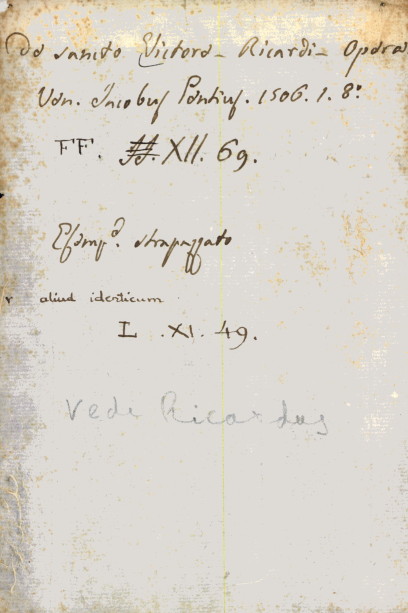 De sancto Victore - Ricardi - Opera
Ven. Jacobus Pentius. 1506. 1. 8°
FF. XII. 69.
Esemp°. strapazzato
aliud identicum
L. XI. 49.
Vedi Ricardus